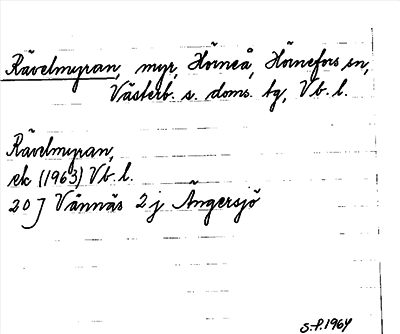 Rävelmyran, myr, Hörneå, Hörnefors sn,
Västerb. s. doms. tg, Vb. l.
Rävelmyran,
ek (1963) Vb. l.
20 J Vännäs 2 j Ängersjö
S-P.1964